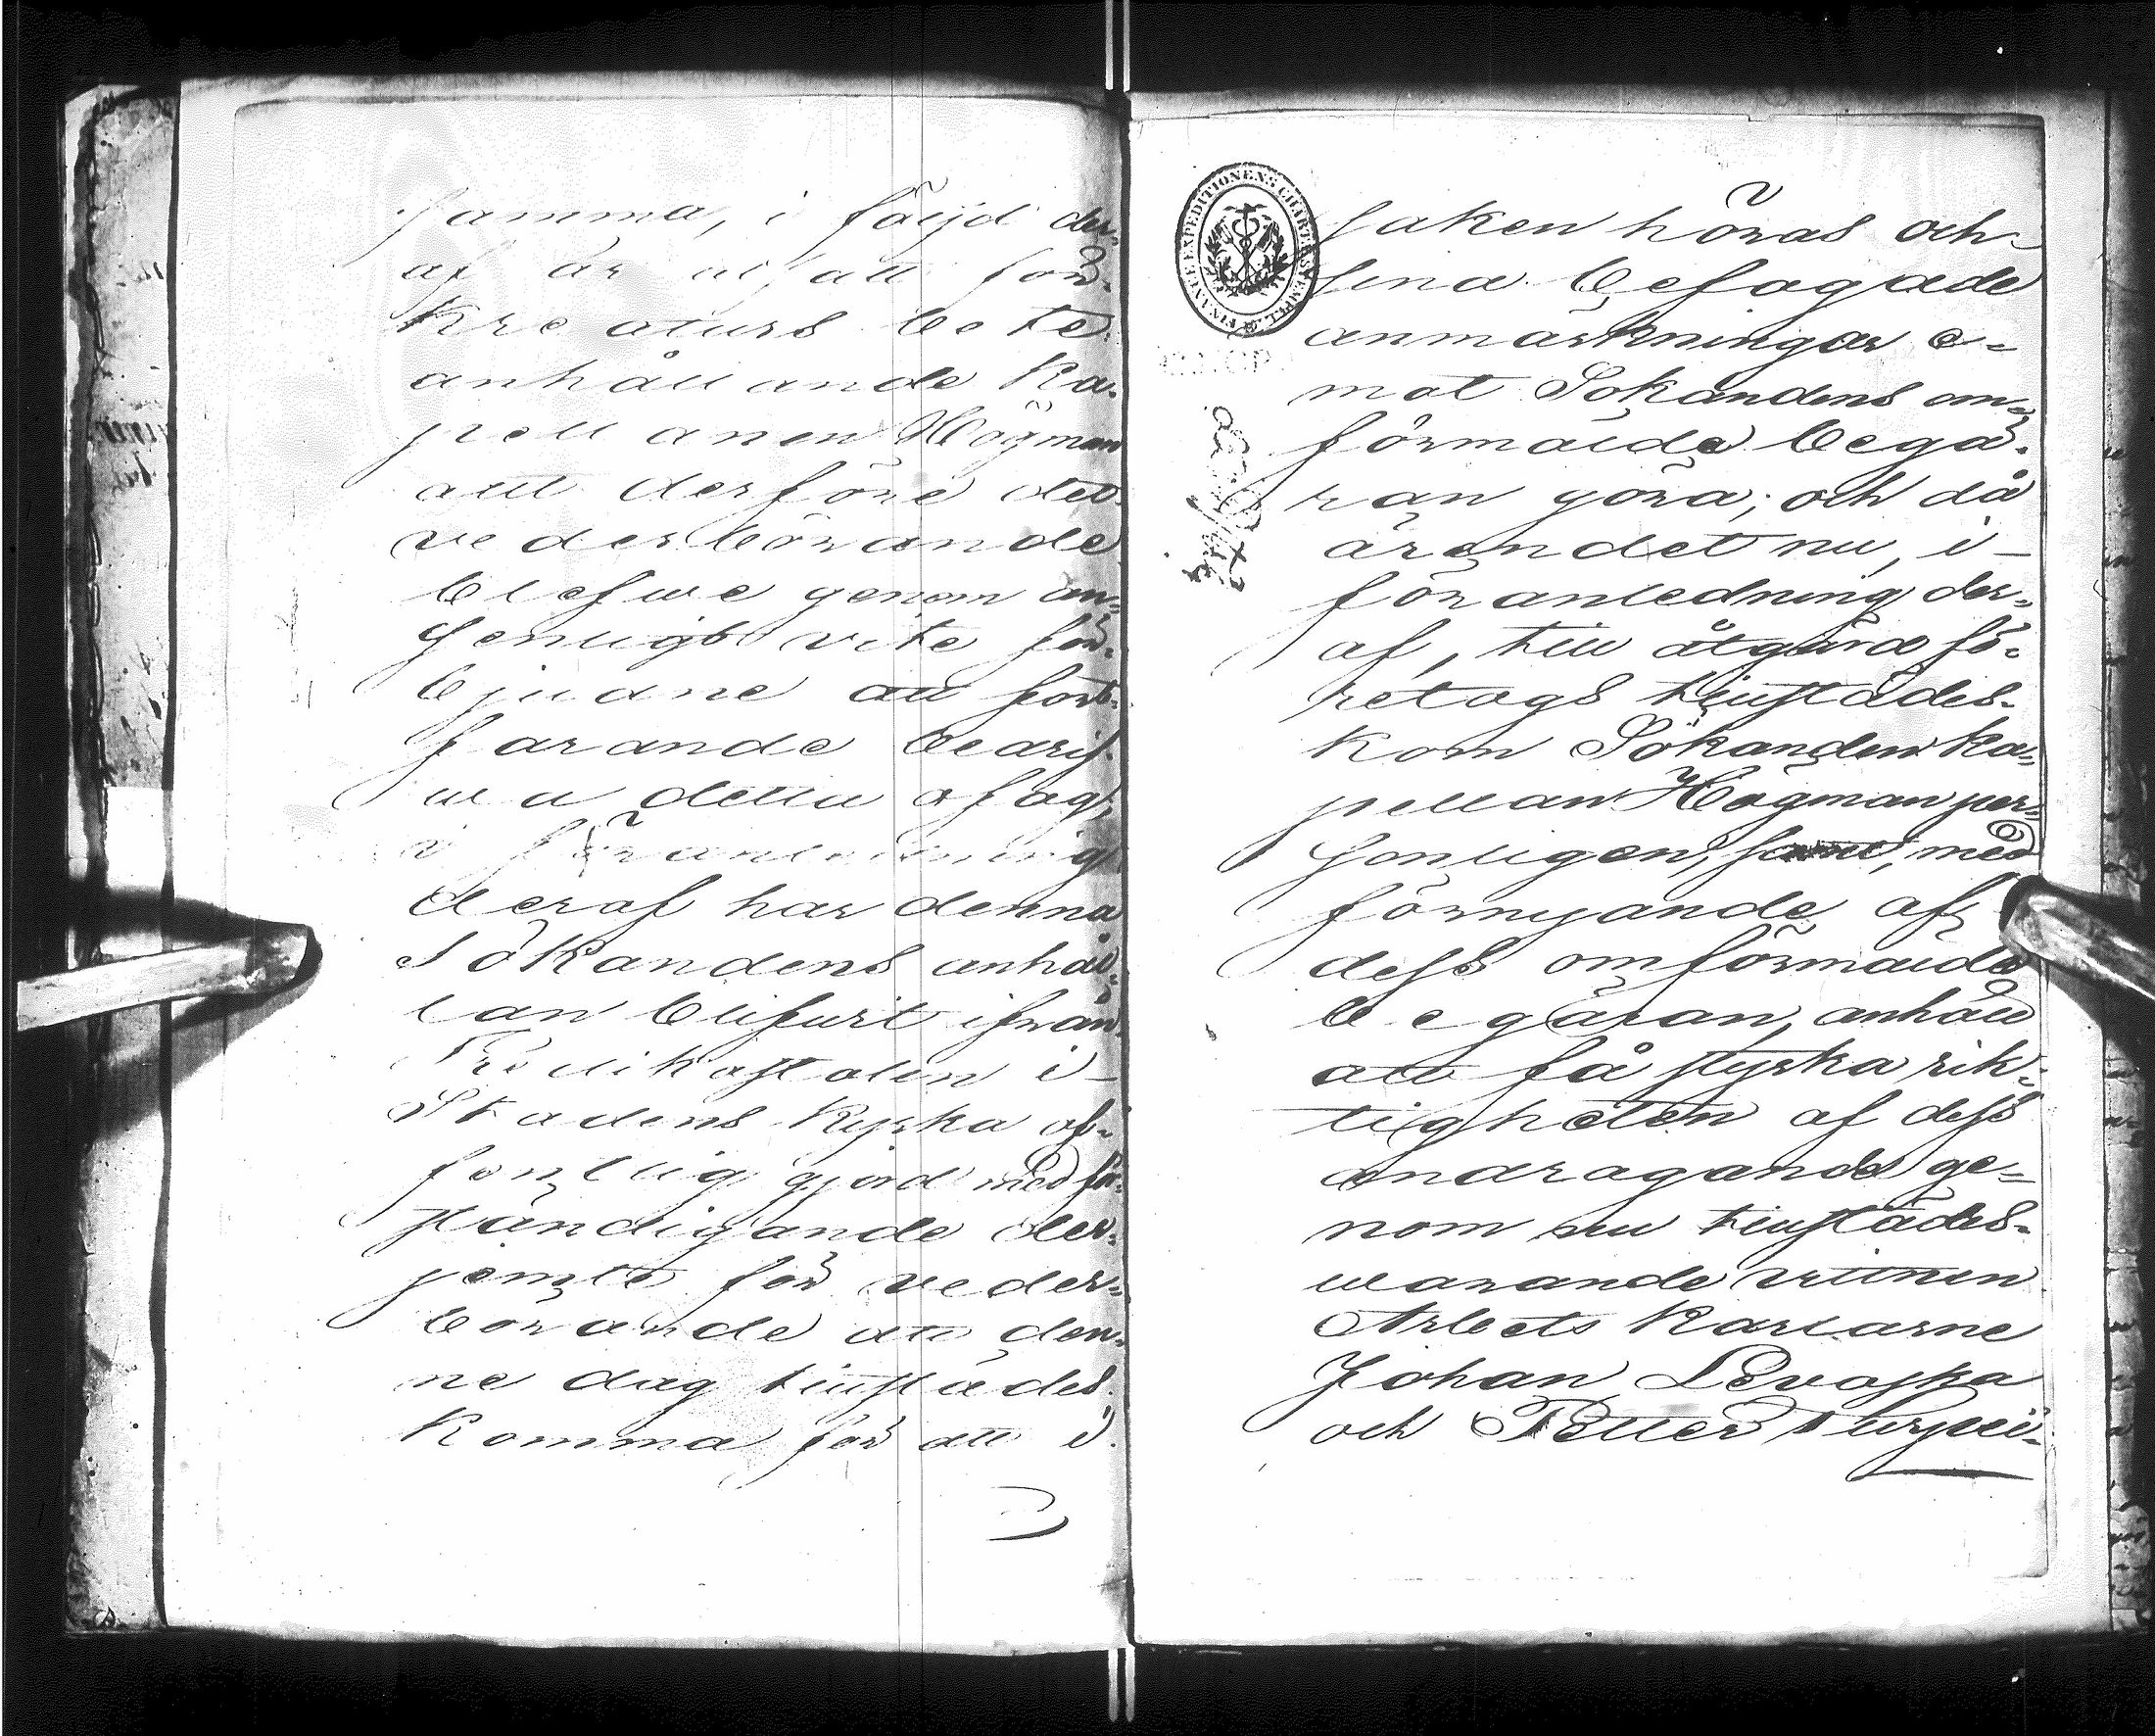 samma, i följd der-
af är utsatt för
Kreaturs bete
anhållande Ka-
pellanen Högman
att derföre det
vederbörande
blefwe genom an-
senligt vite för-
bjudne att fort-
farande bedrif-
wa detta ofog,
i föranledning
deraf har denna
Sökandens anhål-
lan blifwit ifrån
Predikostolen i
Stadens Kyrka of-
fentlig gjord med för-
ständigande der-
jemte för veder-
börande att den-
ne dag tillstädes
Komma för att i
saken höras och
sina befogade
anmärkningar e-
mot Sökandens om-
förmälda begä-
ran göra; och då
ärendet nu, i
föranledning der-
af, till åtgärd fö-
retogs tillstädes-
kom Sökanden ka-
pellan Högman per-
sonligen, samt, med
förnyande af
dess omförmälda
begäran, anhöll
att få styrka rik-
tigheten af dess
andragande ge-
nom nu tillstädes-
warande vittnen
Arbets Karlarne
Johan
och Petter
FINANCE EXPEDITIONENS CHARTÆ STEMPEL